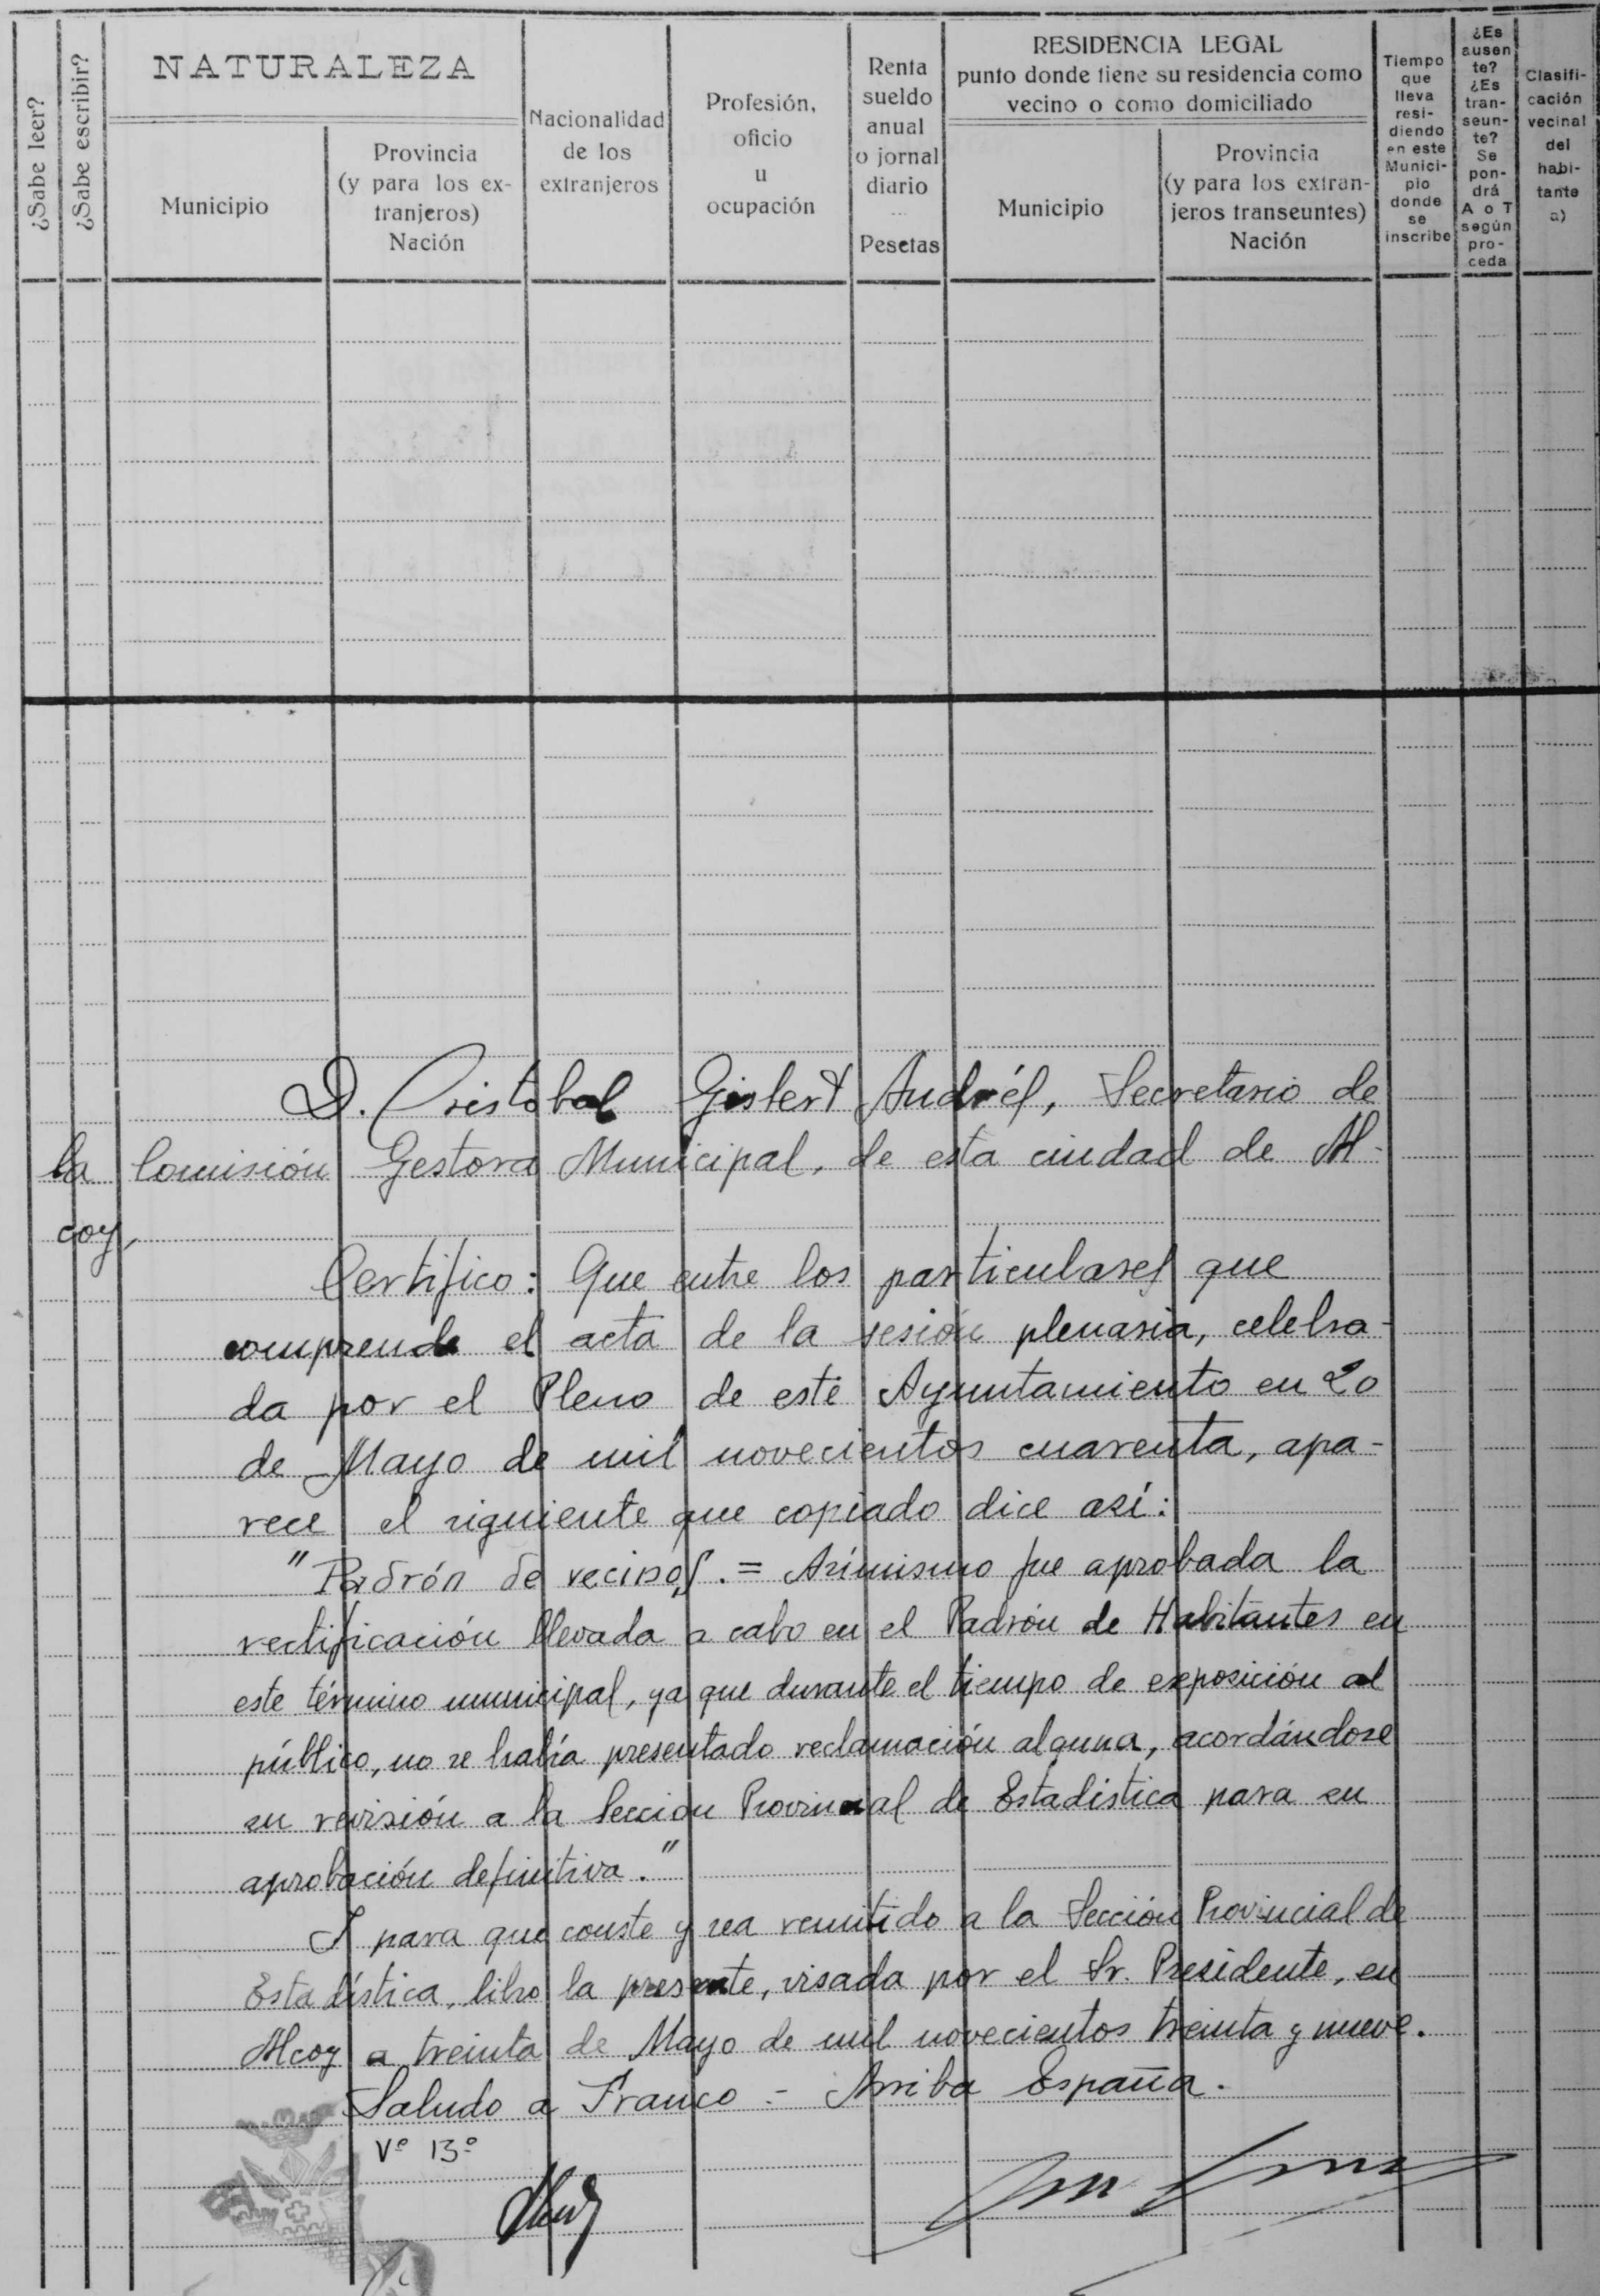 ¿Sabe leer?
¿Sabe escribir?
NATURALEZA
Municipio
Provincia
(y para los ex-
tranjeros)
Nación
Nacionalidad
de los
extranjeros
Profesión,
oficio
u
ocupación
Renta
sueldo
anual
o jornal
diario
...
Pesetas
RESIDENCIA LEGAL
punto donde tiene su residencia como
vecino o como domiciliado
Municipio
Provincia
(y para los extran-
jeros transeuntes)
Nación
Tiempo
que
lleva
resi-
diendo
en este
Munici-
pio
donde
se
inscribe
¿Es
ausen
te?
¿Es
tran-
seun-
te?
Se
pon-
drá
A o T
según
pro-
ceda
Clasifi-
cación
vecinal
del
habi-
tante
a)
D. Cristobal Gisbert Andrés, Secretario de
la Comisión Gestora Municipal, de esta ciudad de Al-
coy,
Certifico: Que entre los particulares que
comprende el acta de la sesión plenaria, celebra-
da por el Pleno de este Ayuntamiento en 20
de Mayo de mil novecientos cuarenta, apa-
rece el siguiente que copiado dice así:
"Padrón de vecinos. = Asímismo fue aprobada la
rectificación llevada a cabo en el Padrón de Habitantes en
este término municipal, ya que durante el tiempo de exposición al
público, no se había presentado reclamación alguna, acordándose
su revisión a la Sección Provincial de Estadística para su
aprobación definitiva."
Y para que conste y sea remitido a la Sección Provincial de
Estadística, libro la presente, visada por el Sr. Presidente, en
Alcoy a treinta de Mayo de mil novecientos treinta y nueve.
Saludo a Franco - Arriba España.
Vº Bº